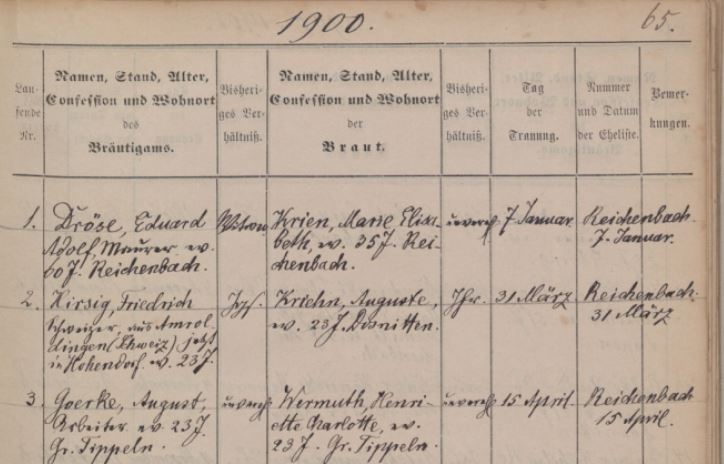 1900.
65.
Lau-
fende
Nr.
Namen, Stand, Alter,
Confession und Wohnort
des
Bräutigams.
Bisheri-
ges Ver-
hältniß.
Namen, Stand, Alter,
Confession und Wohnort
der
Braut.
Bisheri-
ges Ver-
hältniß.
Tag
der
Trauung.
Nummer
und Datum
der Eheliste.
Bemer-
kungen.
1.
Dröse, Eduard
Adolf, Maurer ev.
60 J. Reichenbach.
Krien, Marie Elisa-
beth, ev. 35 J. Rei-
chenbach.
unverh.
7. Januar.
Reichenbach
7. Januar.
2.
Hirsig, Friedrich
Schweizer, aus Amsol-
dingen (Schweiz) jetzt
in Hohendorf ev. 23 J.
Jgs.
Kriehn, Auguste,
ev. 23 J.
Jfr.
31 März
Reichenbach.
31 März
3.
Goerke, August,
Arbeiter ev. 23 J.
Gr. Tippeln.
unverh.
Wermuth, Henri-
ette Charlotte, ev.
23 J. Gr. Tippeln.
unverh.
15 April.
Reichenbach
15 April.